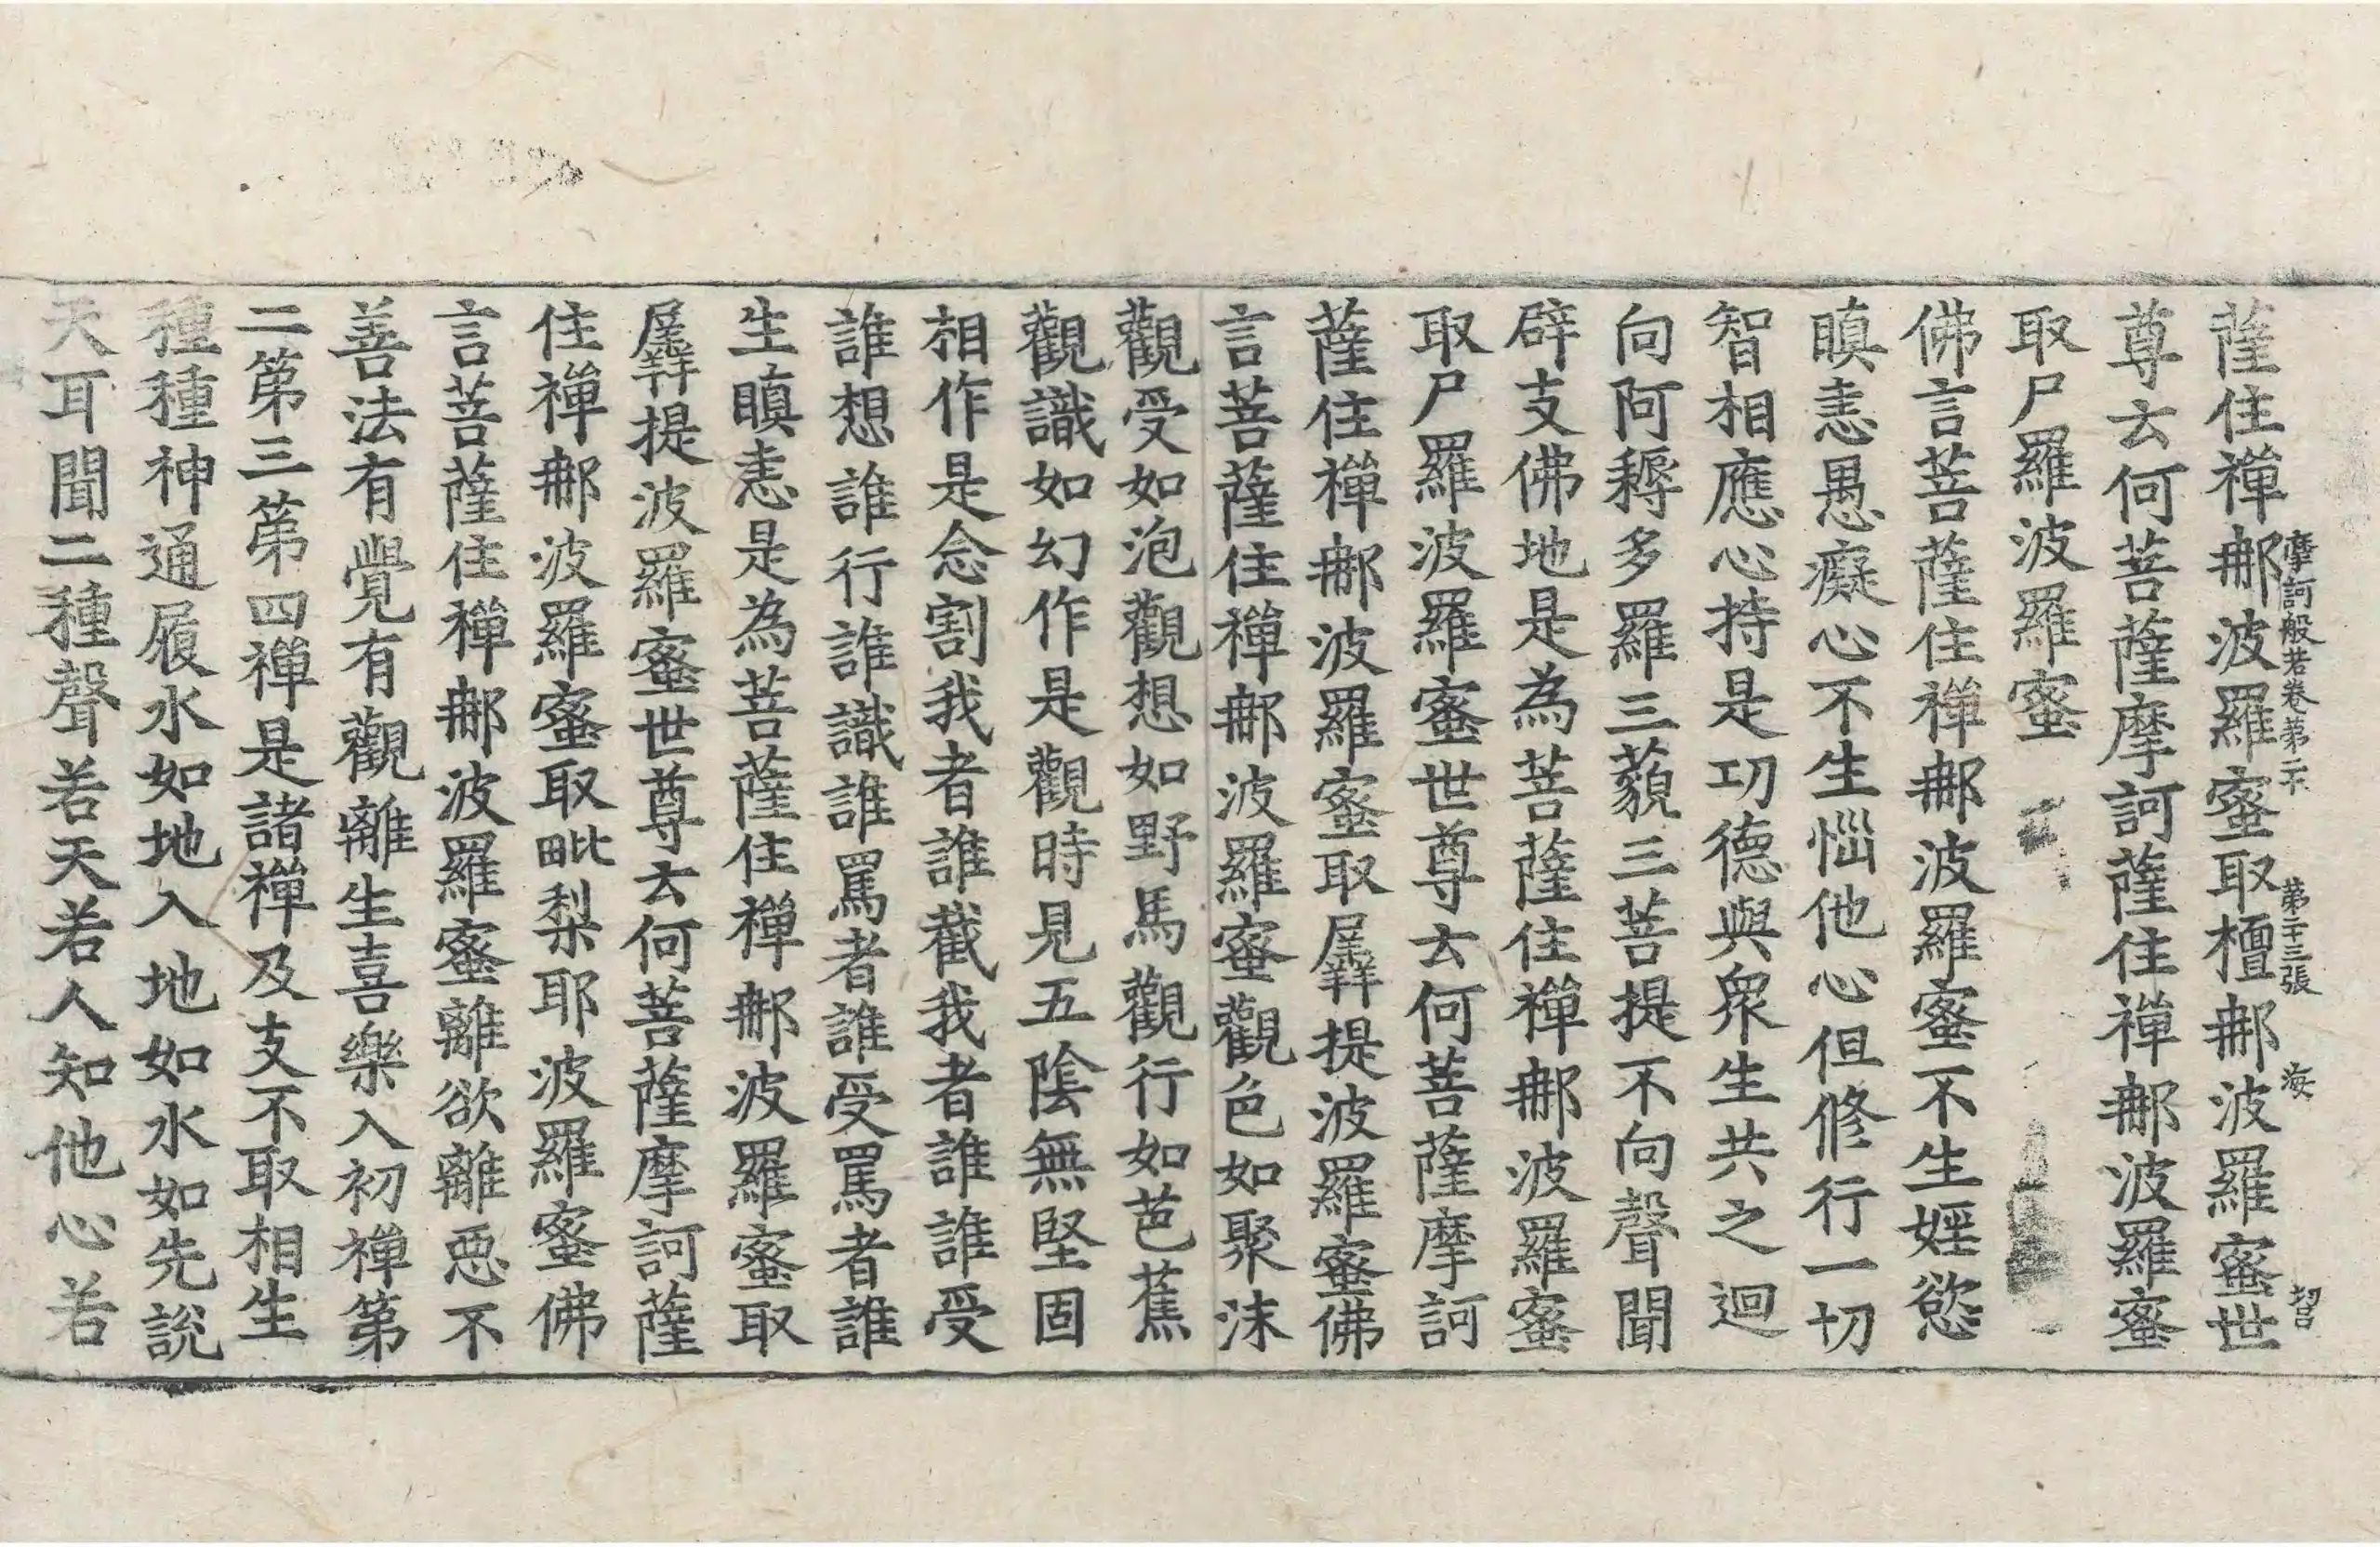 摩訶般若卷第二十 第二十三張 海 智
薩住禪𨚗波羅蜜取檀𨚗波羅蜜世
尊云何菩薩摩訶薩住禪𨚗波羅蜜
取尸羅波羅蜜
佛言菩薩住禪𨚗波羅蜜不生婬慾
瞋恚愚癡心不生惱他心但修行一切
智相應心持是功德與衆生共之迴
向阿耨多羅三藐三菩提不向聲聞
辟支佛地是為菩薩住禪𨚗波羅蜜
取尸羅波羅蜜世尊云何菩薩摩訶
薩住禪𨚗波羅蜜取羼提波羅蜜佛
言菩薩住禪𨚗波羅蜜觀色如聚沫
觀受如泡觀想如野馬觀行如芭蕉
觀識如幻作是觀時見五陰無堅固
相作是念割我者誰截我者誰誰受
誰想誰行誰識誰罵者誰受罵者誰
生瞋恚是為菩薩住禪𨚗波羅蜜取
羼提波羅蜜世尊云何菩薩摩訶薩
住禪𨚗波羅蜜取毗梨耶波羅蜜佛
言菩薩住禪𨚗波羅蜜離欲離惡不
善法有覺有觀離生喜樂入初禪第
二第三第四禪是諸禪及支不取相生
種種神通履水如地入地如水如先說
天耳聞二種聲若天若人知他心若